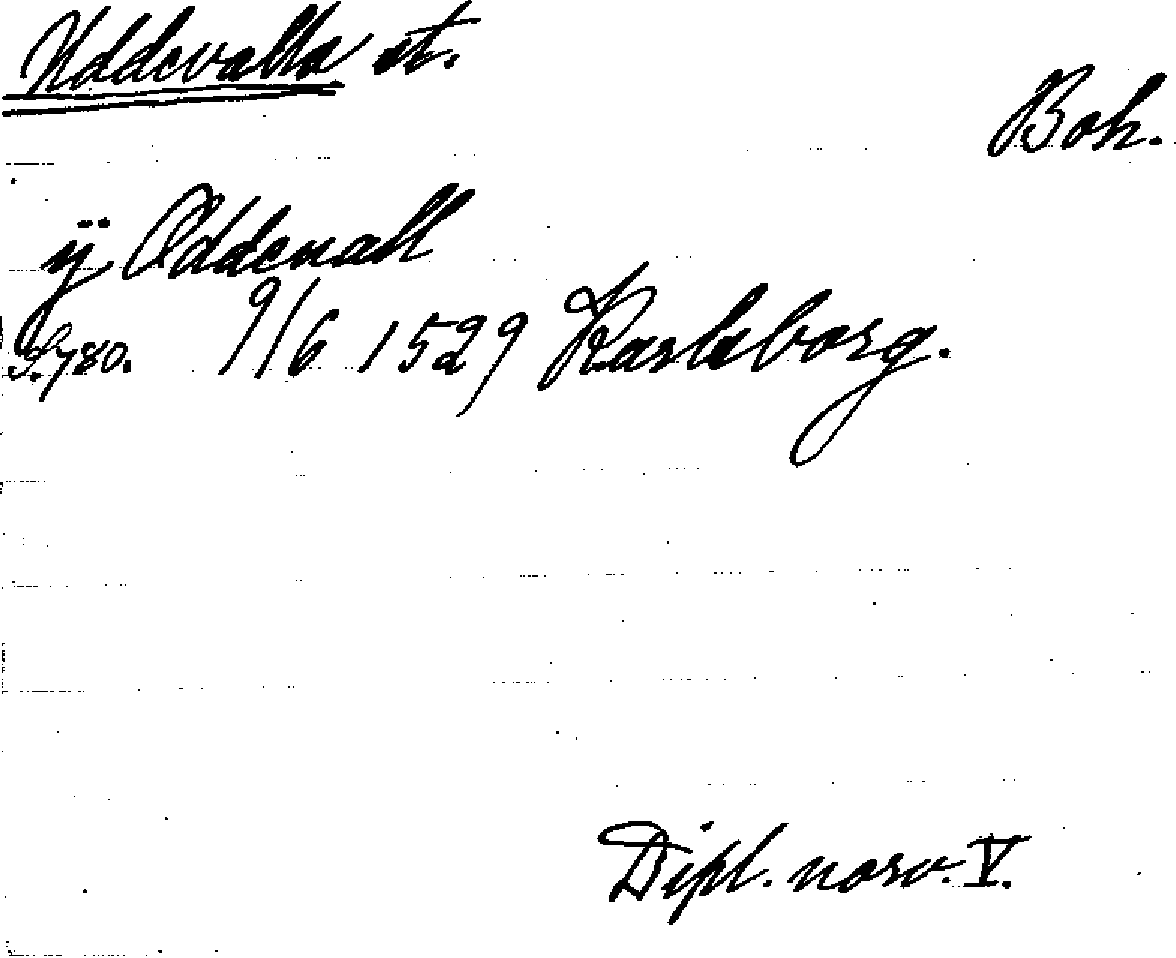 Uddevalla st.
Boh.
ÿ Oddevall
S. 780. 9/6 1529 Karlsborg.
Dipl. norv. V.